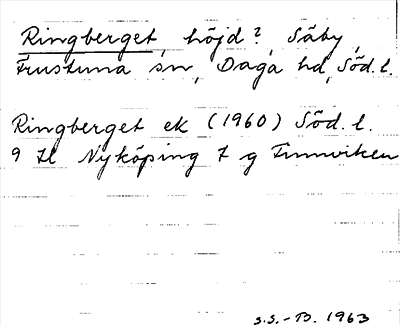 Ringberget, höjd?, Säby,
Frustuna sn, Daga hd, Söd. l.
Ringberget ek (1960) Söd. l.
9 H Nyköping 7 g Finnviken
S.S.-B. 1963